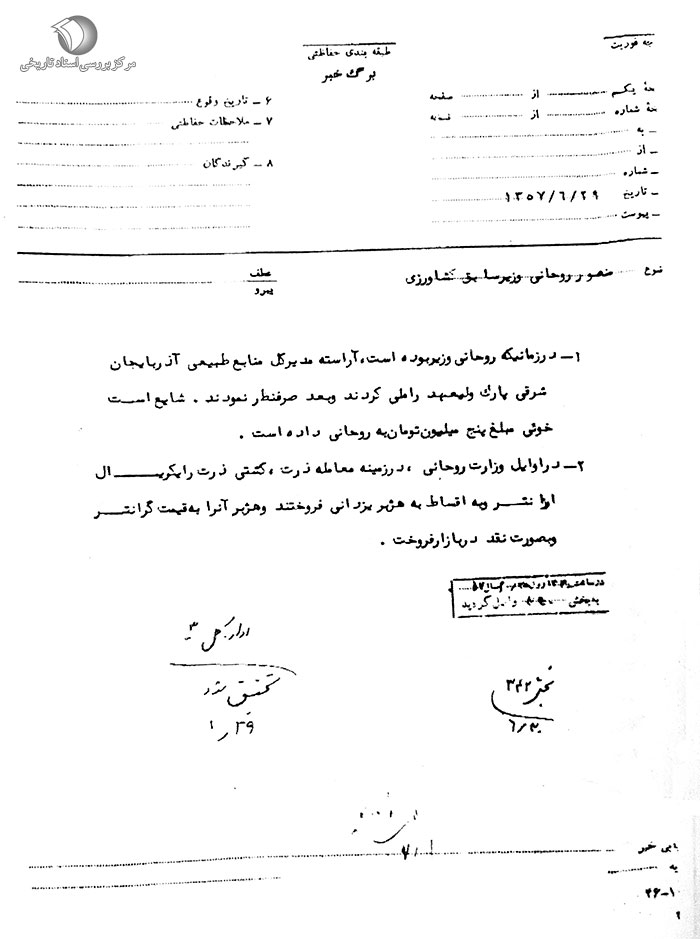 مرکز بررسی اسناد تاریخی
طبقه بندی حفاظتی
برگ خبر
فوریت
یکم ........ از ........ صفحه
شماره ........ از ........
ـ به
ـ از
ـ شماره
ـ تاریخ ۱۳۵۷/۶/۲۹
ـ پیوست
۶ ـ تاریخ وقوع
۷ ـ ملاحظات حفاظتی
۸ ـ گیرندگان
منصور روحانی وزیر سابق کشاورزی
عطف
پیرو
۱ـ در زمانیکه روحانی وزیر بوده است، آراسته مدیرکل منابع طبیعی آذربایجان
شرقی پارک ولیعهد را ملی کردند وبعد صرفنظر نمودند . شایع است
خوئی مبلغ پنج میلیون تومان به روحانی داده است .
۲ـ در اوایل وزارت روحانی ، در زمینه معامله ذرت ، کشتی ذرت را یکریـــال
ارزانتـــر وبه اقساط به هژبر یزدانی فروختند وهژبر آنرا به قیمت گرانتـــر
وبصورت نقد در بازار فروخت .
به بخش ........ واصل گردید
اداره کل ۳
تحقیق شود
بخش ۳۴۲
۶/۳۰
خبر
به
۳۶-۱۰
۲